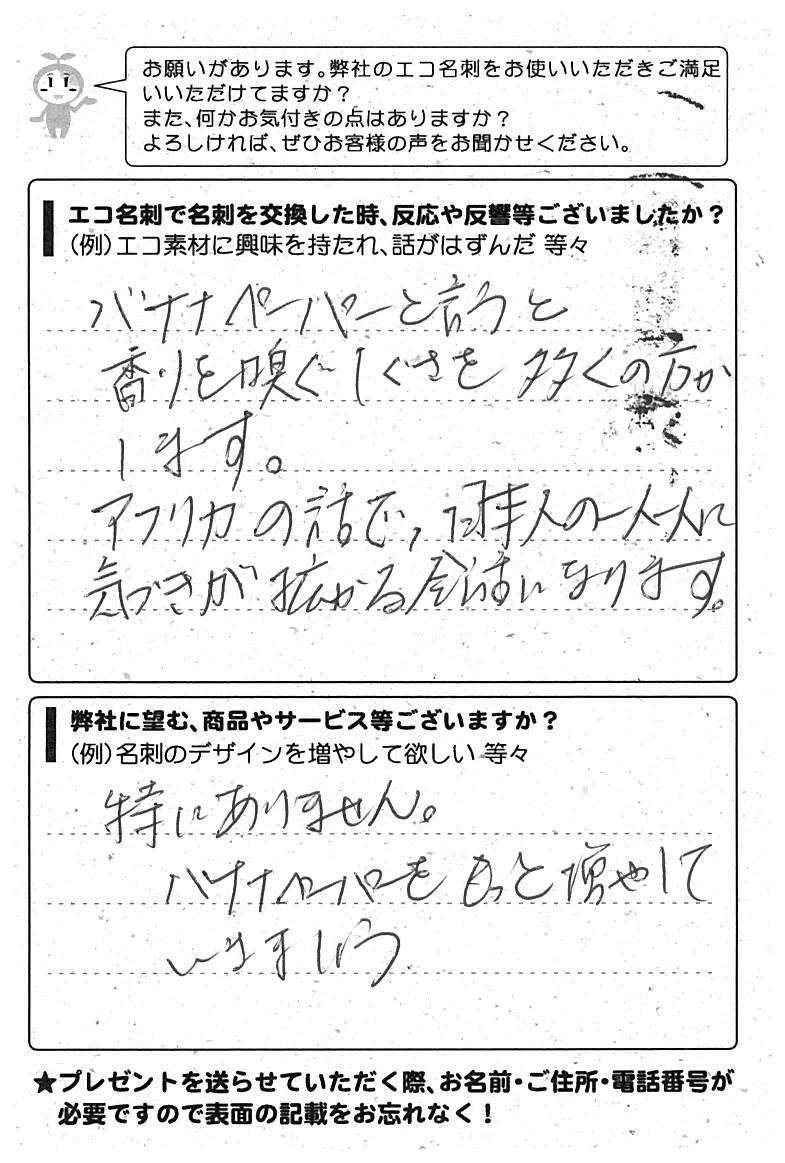 お願いがあります。弊社のエコ名刺をお使いいただきご満足
いいただけてますか？
また、何かお気付きの点はありますか？
よろしければ、ぜひお客様の声をお聞かせください。
エコ名刺で名刺を交換した時、反応や反響等ございましたか？
（例）エコ素材に興味を持たれ、話がはずんだ 等々
バナナペーパーと言うと
香りを嗅ぐしぐさを多くの方が
します。
アフリカの話で、日本人の一人一人に
気づきが拡がる会話になります。
弊社に望む、商品やサービス等ございますか？
（例）名刺のデザインを増やして欲しい 等々
特にありません。
バナナペーパーをもっと増やして
いきましょう
★プレゼントを送らせていただく際、お名前・ご住所・電話番号が
必要ですので表面の記載をお忘れなく！